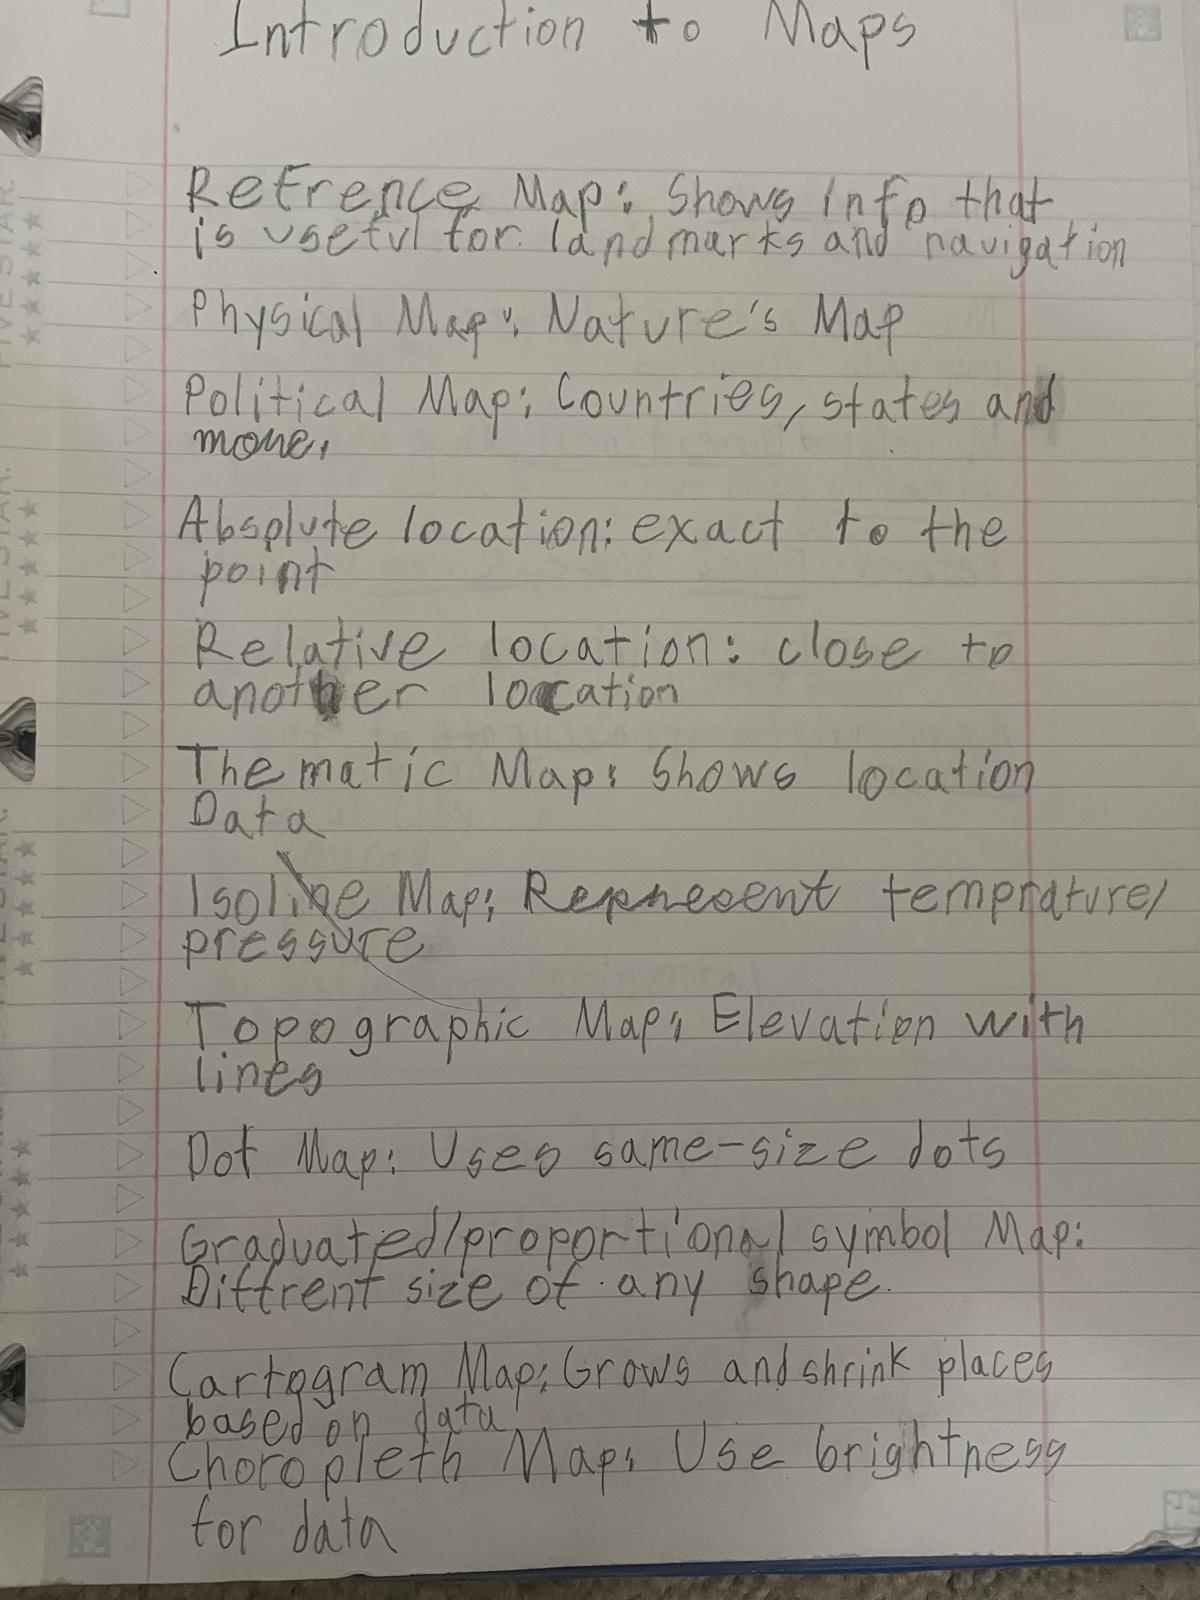 Introduction to Maps
Refrence Map: Shows info that
is useful for landmarks and navigation
Physical Map: Nature's Map
Political Map: Countries, states and
more.
Absolute location: exact to the
point
Relative location: close to
another location
Thematic Map: Shows location
Data
Isoline Map: Represent temprature/
pressure
Topographic Map: Elevation with
lines
Dot Map: Uses same-size dots
Graduated/proportional symbol Map:
Diffrent size of any shape.
Cartogram Map: Grows and shrink places
based on data
Choropleth Map: Use brightness
for data